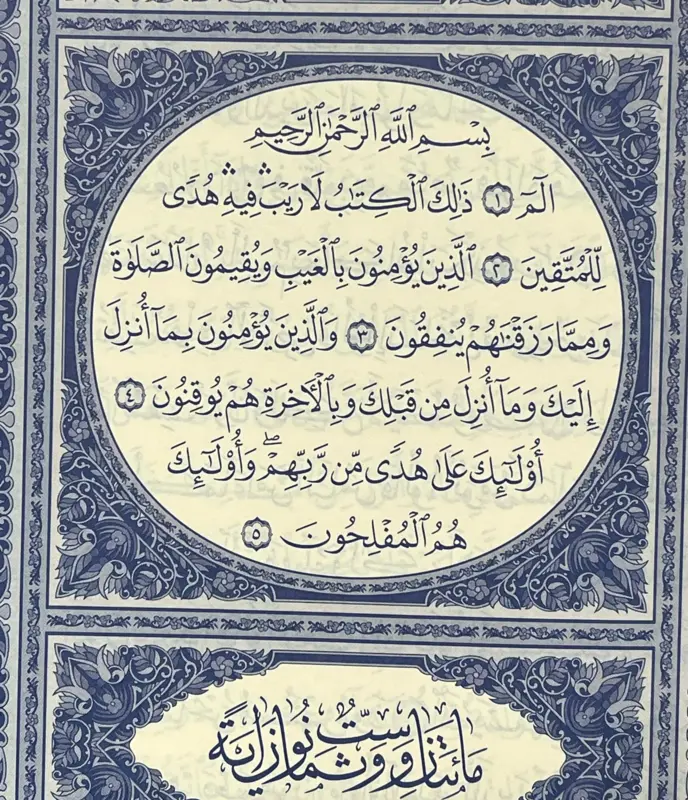 بِسْمِ ٱللَّهِ ٱلرَّحْمَٰنِ ٱلرَّحِيمِ
الٓمٓ ١ ذَٰلِكَ ٱلْكِتَٰبُ لَا رَيْبَۛ فِيهِۛ هُدًى
لِّلْمُتَّقِينَ ٢ ٱلَّذِينَ يُؤْمِنُونَ بِٱلْغَيْبِ وَيُقِيمُونَ ٱلصَّلَوٰةَ
وَمِمَّا رَزَقْنَٰهُمْ يُنفِقُونَ ٣ وَٱلَّذِينَ يُؤْمِنُونَ بِمَآ أُنزِلَ
إِلَيْكَ وَمَآ أُنزِلَ مِن قَبْلِكَ وَبِٱلْءَاخِرَةِ هُمْ يُوقِنُونَ ٤
أُو۟لَٰٓئِكَ عَلَىٰ هُدًى مِّن رَّبِّهِمْۖ وَأُو۟لَٰٓئِكَ
هُمُ ٱلْمُفْلِحُونَ ٥
مَائَتَانِ وَسِتٌّ وَثَمَانُونَ آيَةً